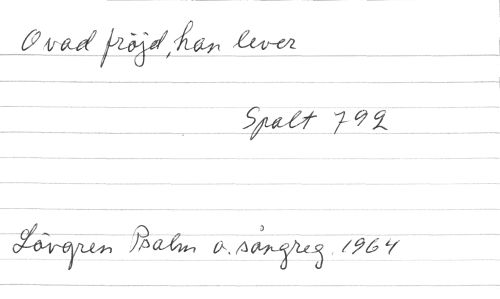 O vad fröjd, han lever
Spalt 792
Lövgren Psalm o. sångreg. 1964